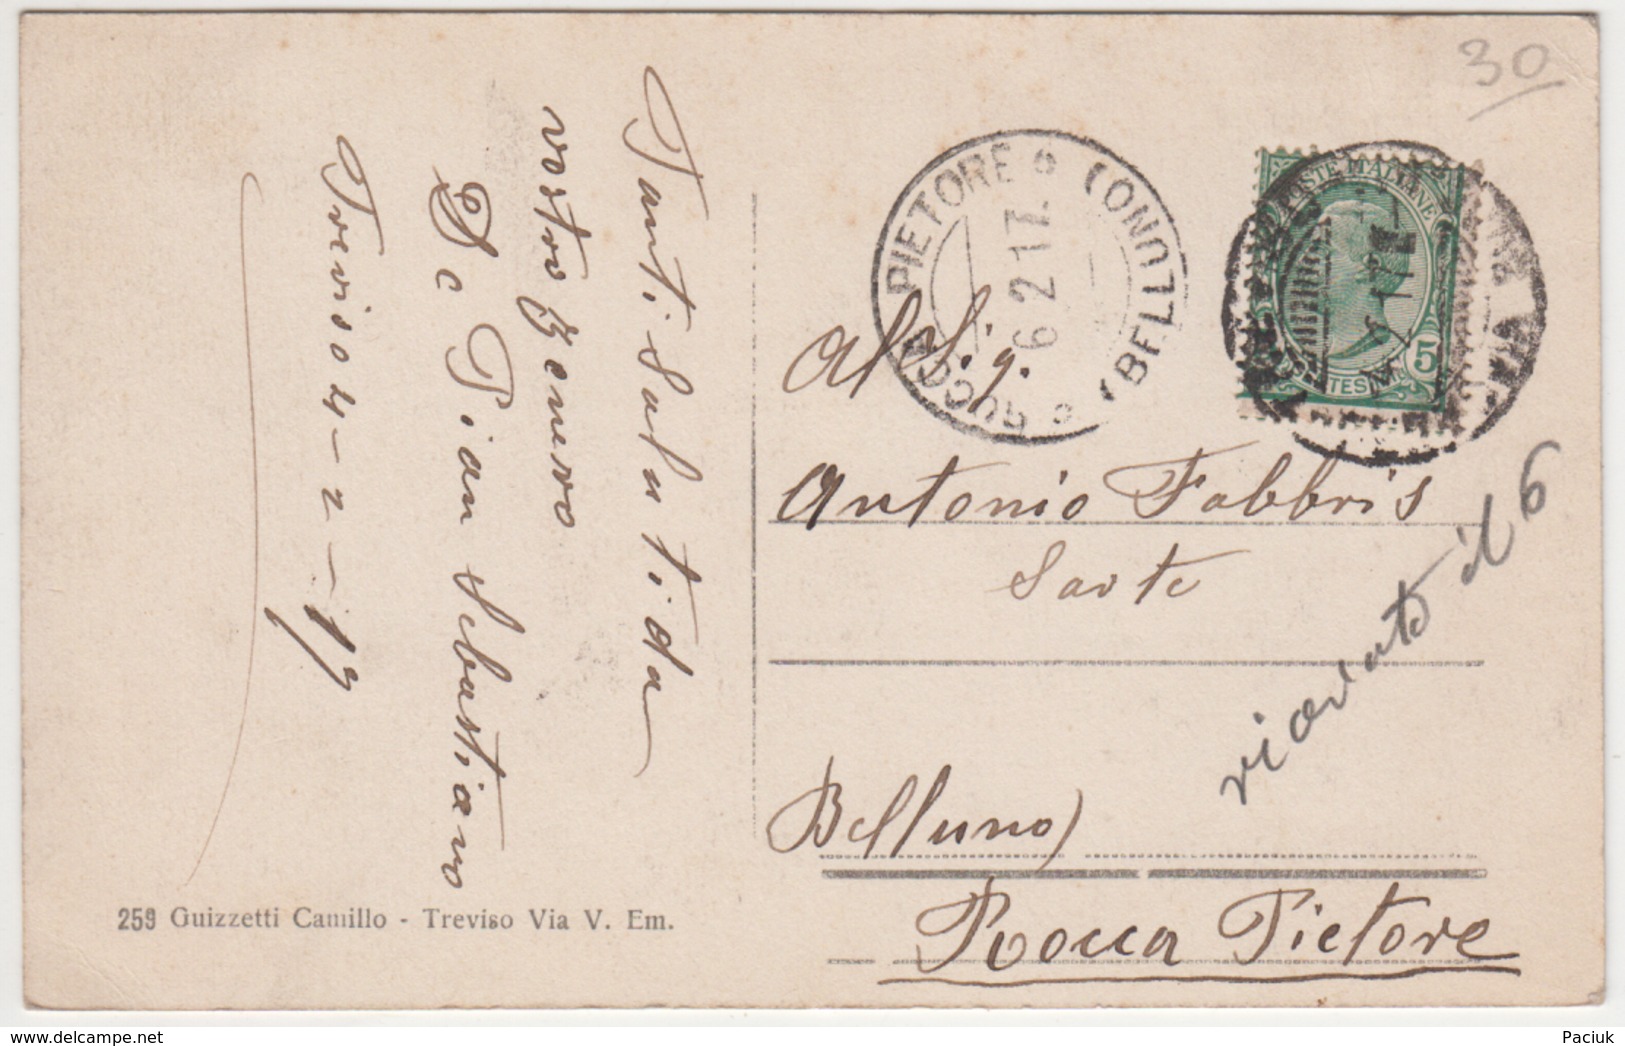 30
Tanti saluti da
vostro genero
De Pian Sebastiano
Treviso 4-2-17
259 Guizzetti Camillo - Treviso Via V. Em.
ROCCA PIETORE
(BELLUNO)
6 2 17.
POSTE ITALIANE
CENTESIMI 5
Al Sig.
Antonio Fabbris
Sarte
Belluno)
Rocca Pietore
il 6
delcampe.net
Paciuk